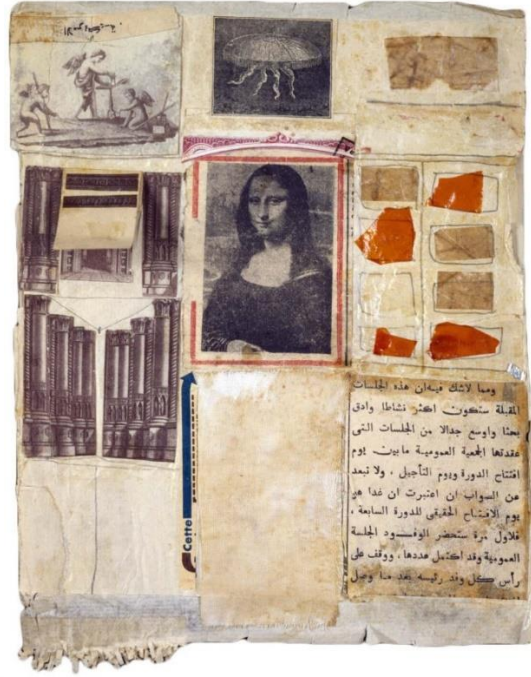 Cette
ومما لاشك فيه ان هذه الجلسات
المقبلة ستكون اكثر نشاطا وادق
بحثا واوسع جدالا من الجلسات التى
عقدتها الجمعية العمومية مابين يوم
افتتاح الدورة ويوم التأجيل ، ولا تبعد
عن الصواب ان اعتبرت ان غدا هو
يوم الافتتاح الحقيقى للدورة السابعة ،
فلاول مرة ستحضر الوفود الجلسة
العمومية وقد اكتمل عددها ، ووقف على
رأس كل وفد رئيسه بعد ما وصل